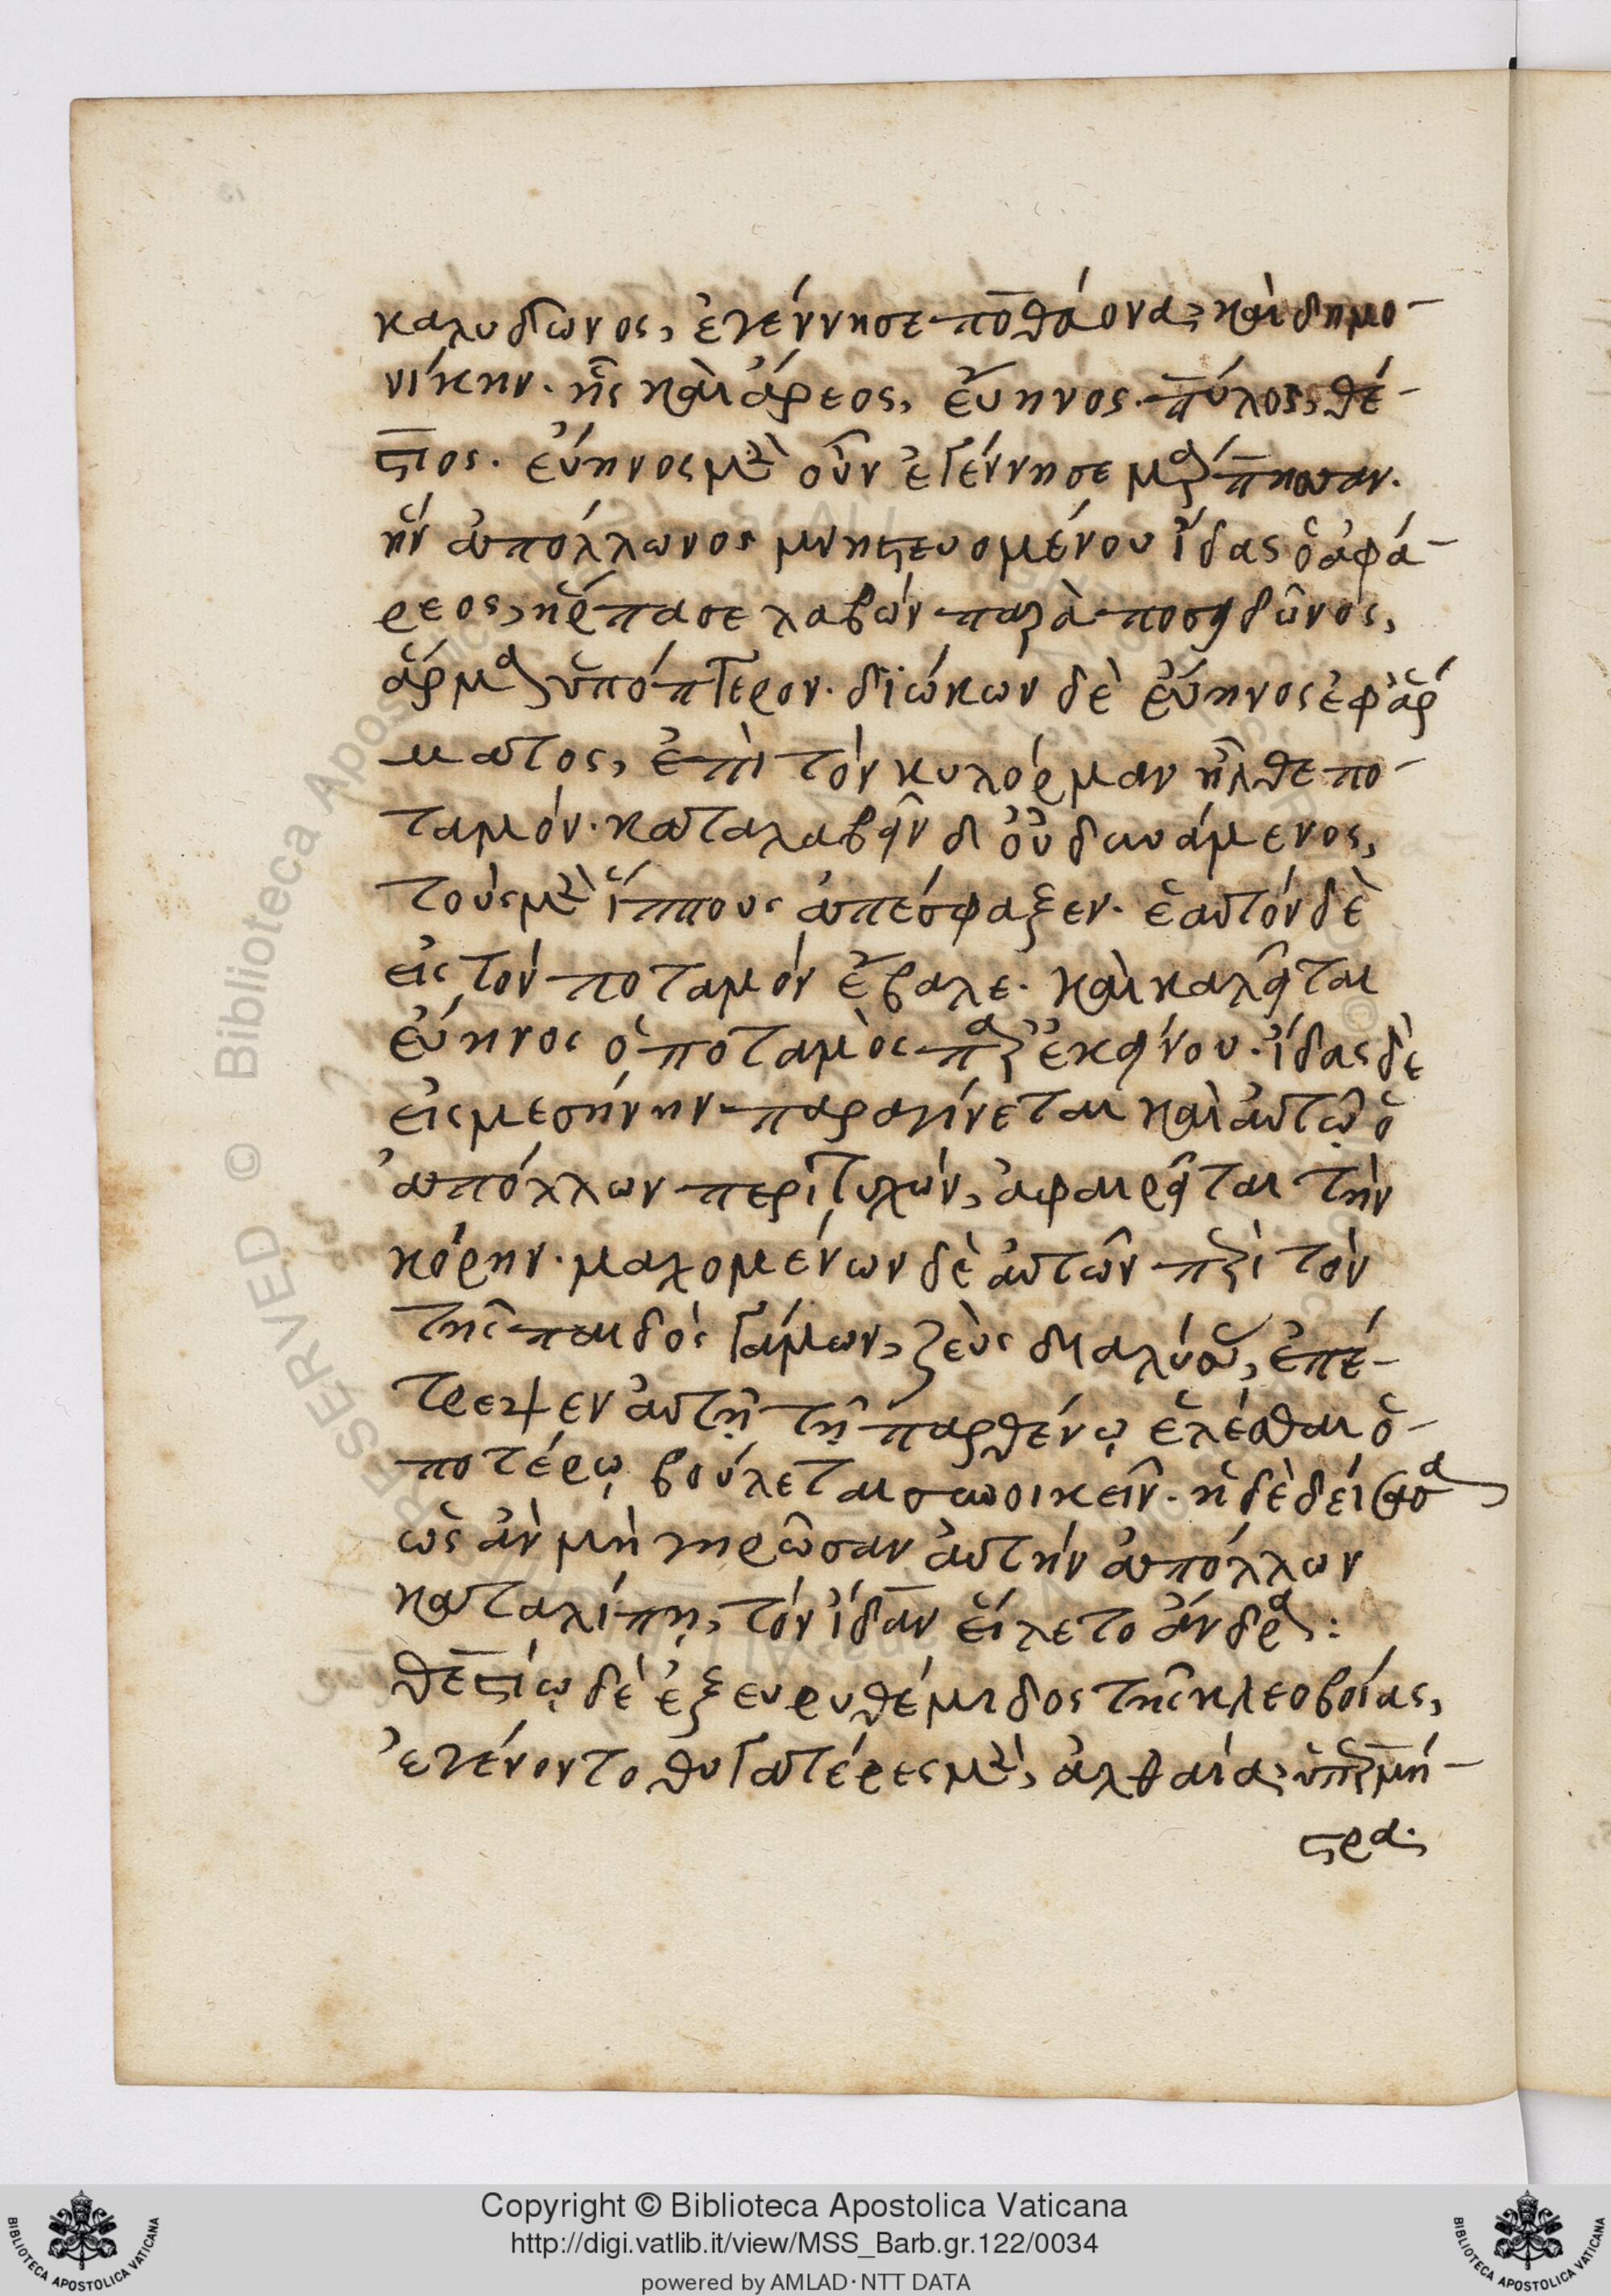 καλυδῶνος, ἐγέννησε ποθάονα, καὶ δημο-
νίκην. ἧς καὶ ἄρεος, εὔηνος. πύλος, θέ-
στιος. εὔηνος μὲν οὖν ἐγέννησε μάρπησαν.
ἣν ἀπόλλωνος μνηστευομένου ἴδας ὁ ἀφά-
ρεος, ἥρπασε λαβὼν παρὰ ποσειδῶνος,
ἅρμα ὑπόπτερον. διώκων δὲ εὔηνος ἐφ' ἅρ
ματος, ἐπὶ τὸν κυλόρμαν ἦλθε πο-
ταμόν. καταλαβεῖν δ' οὐ δυνάμενος,
τοὺς μὲν ἵππους ἀπέσφαξεν. ἑαυτὸν δὲ
εἰς τὸν ποταμὸν ἔβαλε. καὶ καλεῖται
εὔηνος ὁ ποταμὸς ἀπ' ἐκείνου. ἴδας δὲ
εἰς μεσήνην παραγίνεται καὶ αὐτῷ ὁ
ἀπόλλων περιτυχών, ἀφαιρεῖται τὴν
κόρην. μαχομένων δὲ αὐτῶν περὶ τὸν
τῆς παιδὸς γάμων, ζεὺς διαλύσας, ἐπέ-
τρεψεν αὐτῇ τῇ παρθένῳ ἑλέσθαι ὁ-
ποτέρῳ βούλεται συνοικεῖν. ἡ δὲ δείσασα
ὡς ἂν μὴ γηρῶσαν αὐτὴν ἀπόλλων
καταλίπῃ, τὸν ἴδαν εἵλετο ἄνδρα:
θεστίῳ δὲ ἐξ ευρυθέμιδος τῆς κλεοβοίας,
ἐγένοντο θυγατέρες μὲν, ἀλθαία, ὑπερμή-
στρα.
Copyright © Biblioteca Apostolica Vaticana
http://digi.vatlib.it/view/MSS_Barb.gr.122/0034
powered by AMLAD·NTT DATA